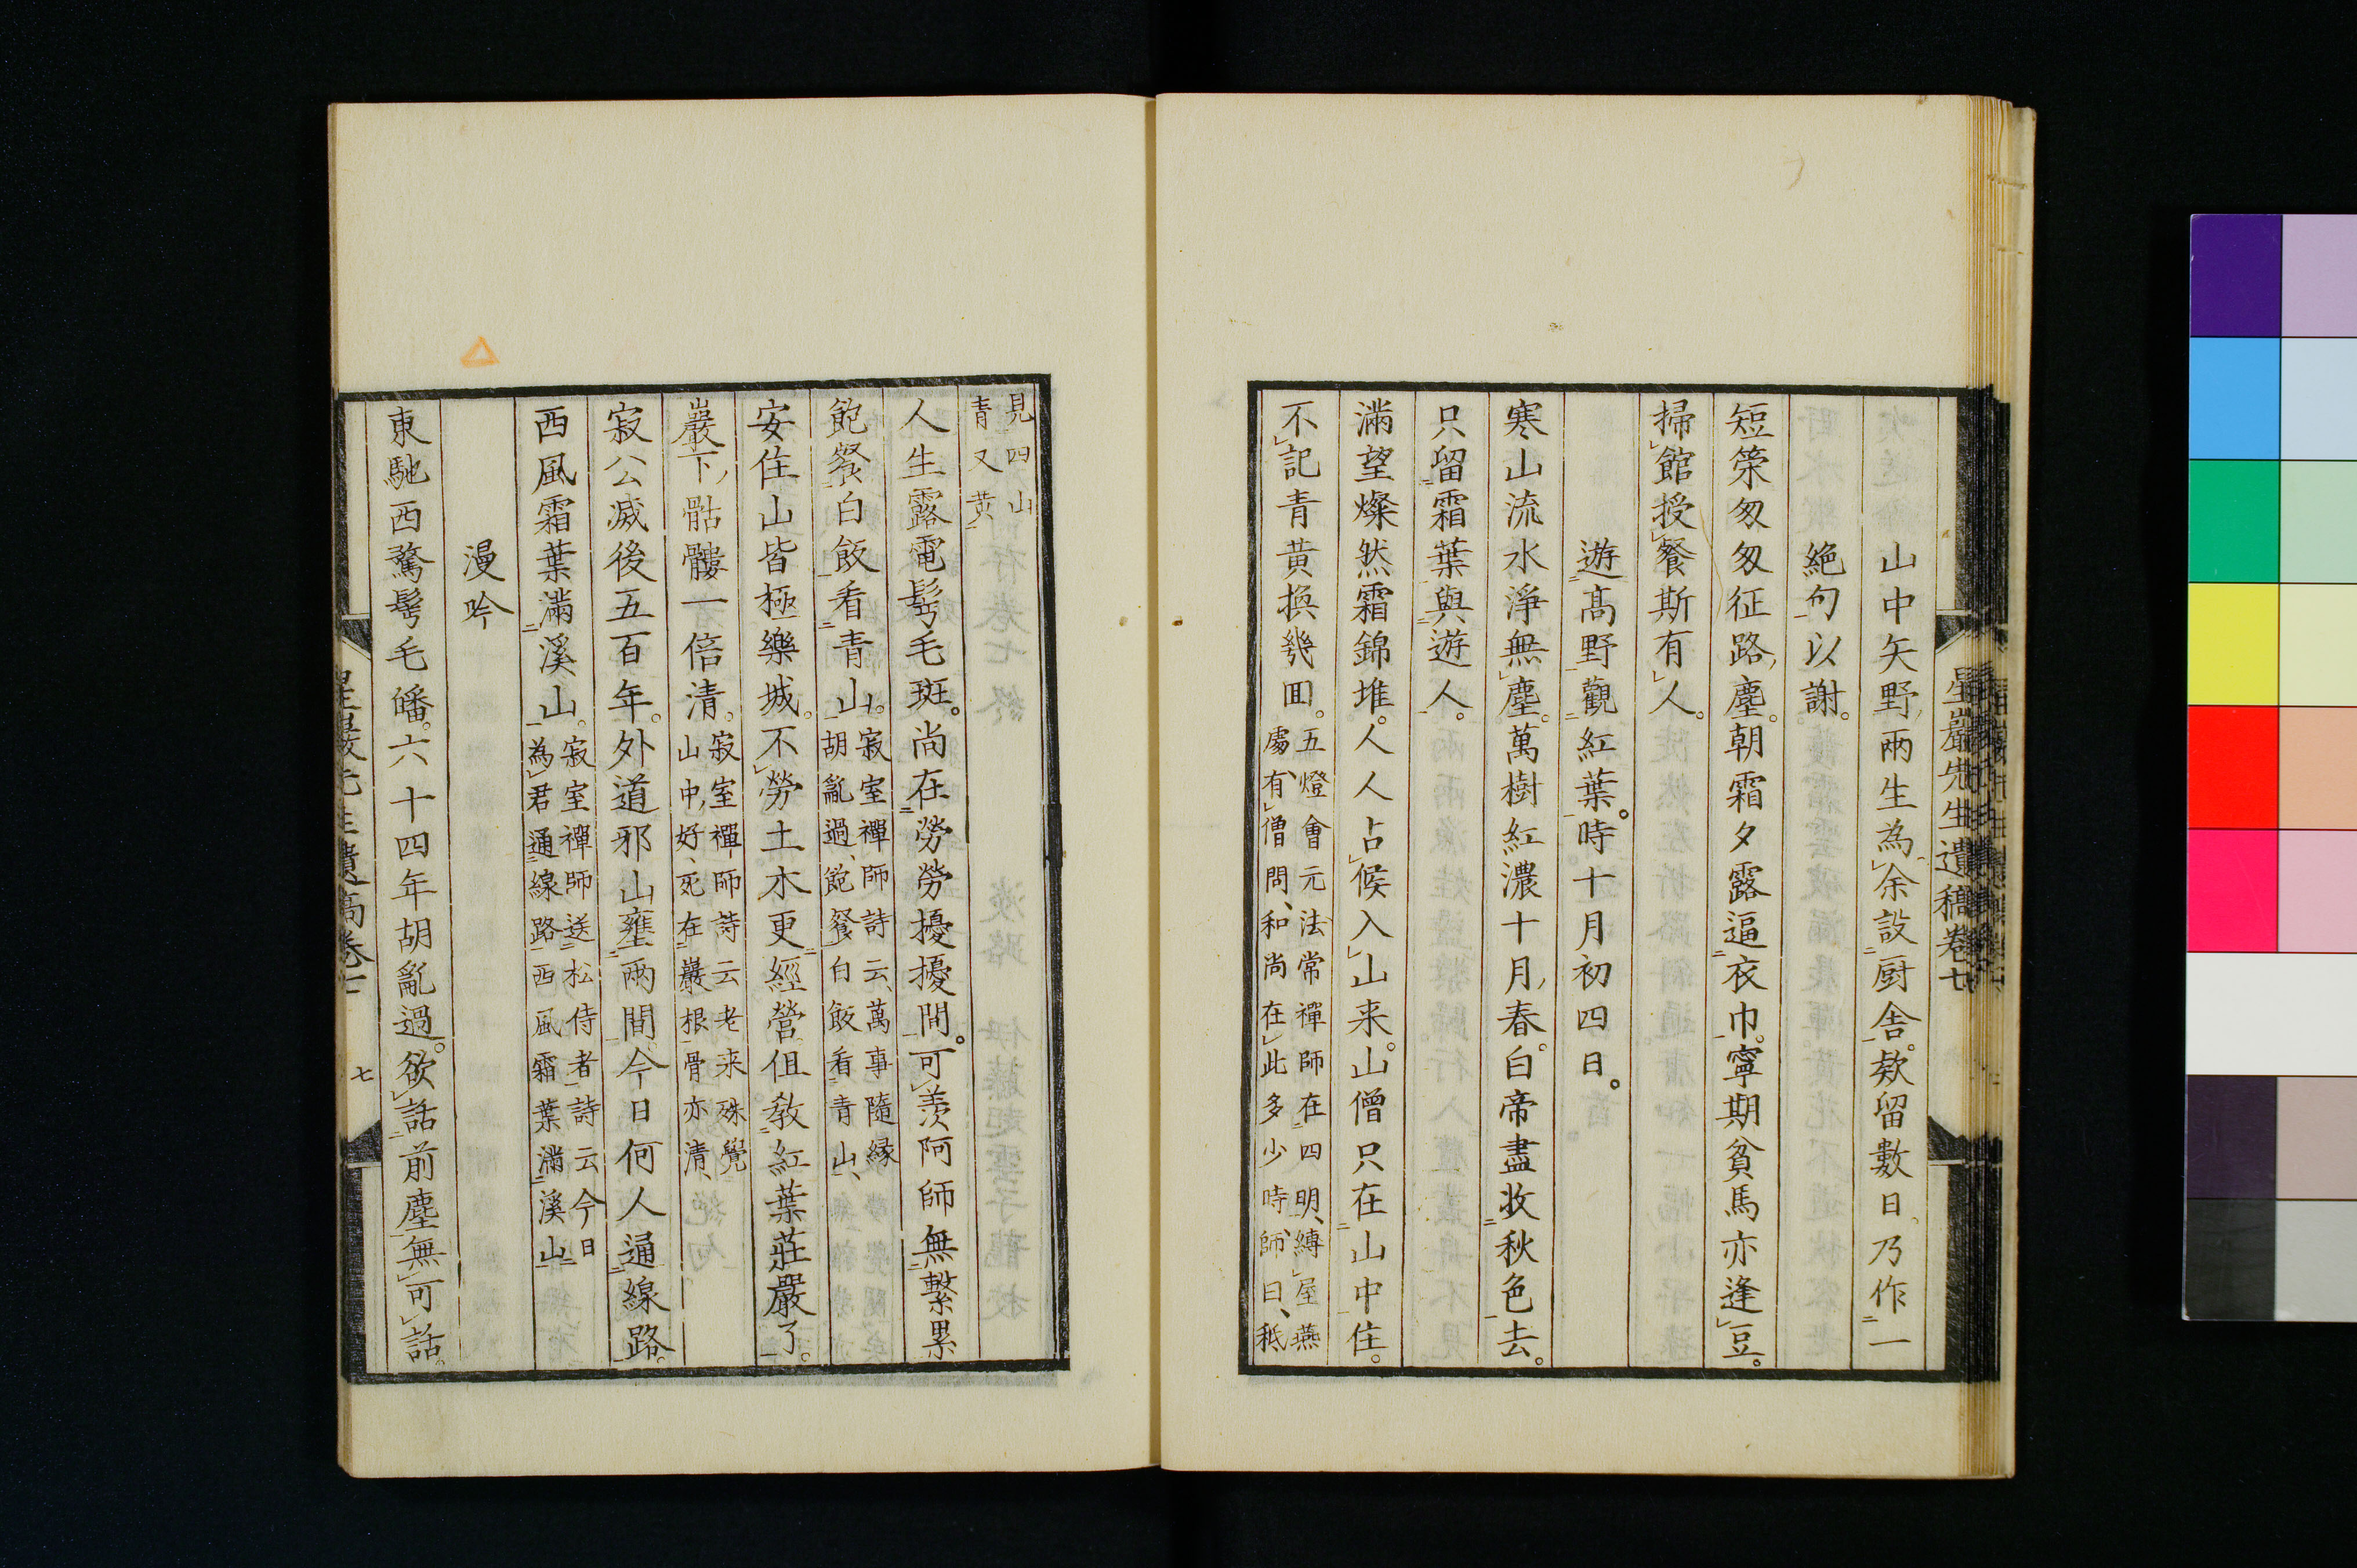 星巖先生遺稿卷七
山中矢野兩生為余設厨舍欵留數日乃作一
絕句以謝
短策匆匆征路塵朝霜夕露逼衣巾寧期貧馬亦逢豆
掃館授餐斯有人
遊高野觀紅葉時十月初四日
寒山流水淨無塵萬樹紅濃十月春白帝盡收秋色去
只留霜葉與遊人
滿望燦然霜錦堆人人占候入山来山僧只在山中住
不記青黃換幾回
五燈會元法常禪師在四明縛屋燕
處有僧問和尚在此多少時師曰秖
見四山
青又黃
人生露電髩毛斑尚在勞勞擾擾間可羨阿師無繫累
飽餐白飯看青山
寂室禪師詩云萬事隨縁
胡亂過飽餐白飯看青山
安住山皆極樂城不勞土木更經營但教紅葉莊嚴了
巖下骷髏一倍清
寂室禪師詩云老来殊覺
山中好死在巖根骨亦清
寂公滅後五百年外道邪山壅兩間今日何人通線路
西風霜葉滿溪山
寂室禪師送松侍者詩云今日
為君通線路西風霜葉滿溪山
漫吟
東馳西騖髩毛皤六十四年胡亂過欲話前塵無可話
星巖先生遺稿卷七 七